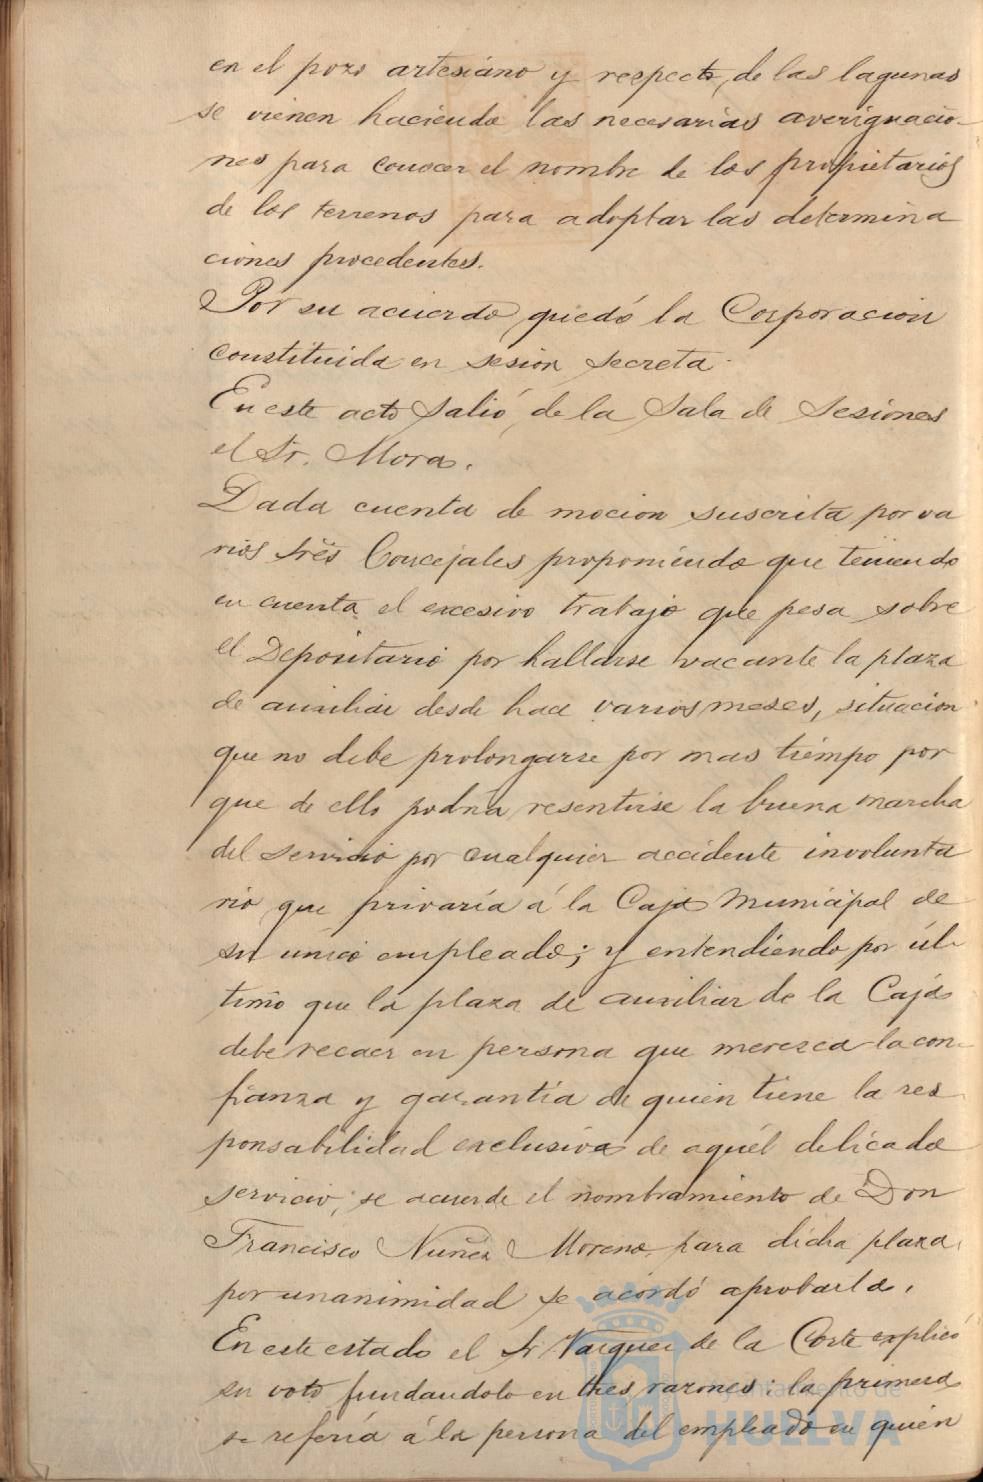 en el pozo artesiano y respecto de las lagunas
se vienen haciendo las necesarias averiguacio-
nes para conocer el nombre de los propietarios
de los terrenos para adoptar las determina
ciones procedentes.
Por su acuerdo quedó la Corporacion
constituida en sesion secreta.
En este acto salió de la Sala de Sesiones
el Sr. Mora.
Dada cuenta de mocion suscrita por va
rios Sres Concejales proponiendo que teniendo
en cuenta el excesivo trabajo que pesa sobre
el Depositario por hallarse vacante la plaza
de auxiliar desde hace varios meses, situacion
que no debe prolongarse por mas tiempo por
que de ello podria resentirse la buena marcha
del servicio por cualquier accidente involunta
rio que privaría á la Caja Municipal de
su unico empleado; y entendiendo por úl-
timo que la plaza de auxiliar de la Caja
debe recaer en persona que merezca la con-
fianza y garantía de quien tiene la res-
ponsabilidad exclusiva de aquél delicado
servicio, se acuerde el nombramiento de Don
Francisco Nuñez Moreno para dicha plaza,
por unanimidad se acordó aprobarla.
En este estado el Sr Vazquez de la Corte explicó
su voto fundandolo en tres razones: la primera
se refería á la persona del empleado en quien
Ayuntamiento de
HUELVA